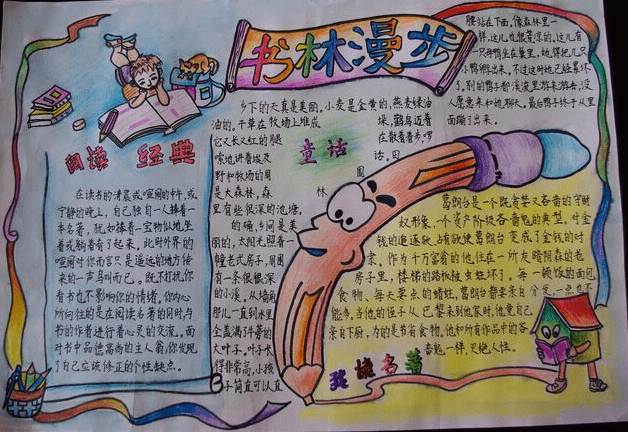 书林漫步
阅读 经典
在读书的清晨或喧闹的中午,或
宁静的晚上,自己独自一人捧着一
本名著,犹如捧着一宝物似地坐
着或躺着看了起来,此时外界的
喧闹对你而言只是遥远的地方传
来的一声鸟叫而已。既不打扰你
看书也不影响你的情绪,你内心
所向往的是在阅读名著的同时与
书的作者进行着心灵的交流。面
对书中品德高尚的主人翁,你发现
了自己应该修正的个性缺点。
童话
乡下的天真是美丽。小麦是金黄的,燕麦绿油
油的。干草在牧场上堆成
垛,鹳鸟迈着
它又长又红的腿
在散着步,啰
嗦地讲着埃及
话。田
野和牧场的周
围
是大森林,森
林
里有些很深的池塘。
的确,乡间是美
丽的,太阳光照着一
幢老式房子,周围
有一条很深
的小溪。从墙角
那儿一直到水里,
全盖满了牛蒡的
大叶子。叶子长
得非常高,小孩
子简直可以直
腰站在下面,像森林里一
样。这儿也很荒凉的。这儿有
一只母鸭坐在窠里,她得把几只
小鸭孵出来。不过这时她已经累坏
了。别的鸭子都溪流里游来游去,没
人愿意来和她聊天。最后鸭子终于从里
面蹦了出来。
葛朗台是一个既贪婪又吝啬的守财
奴形象,一个资产阶级吝啬鬼的典型。对金
钱的追逐欲,占有欲使葛朗台变成了金钱的对
象,作为千万富翁的他,住在一所灰暗阴森的老
房子里,楼梯的踏板被虫蛀坏了。每一顿饭的面包
食物,每天要点的蜡烛,葛朗台都要亲自分发一点也不
能多,当他的侄子从巴黎来到他家时,他竟自己
亲自下厨,为的是节省食物,他和所有作品中的吝
啬鬼一样,灭绝人性。
我读名著